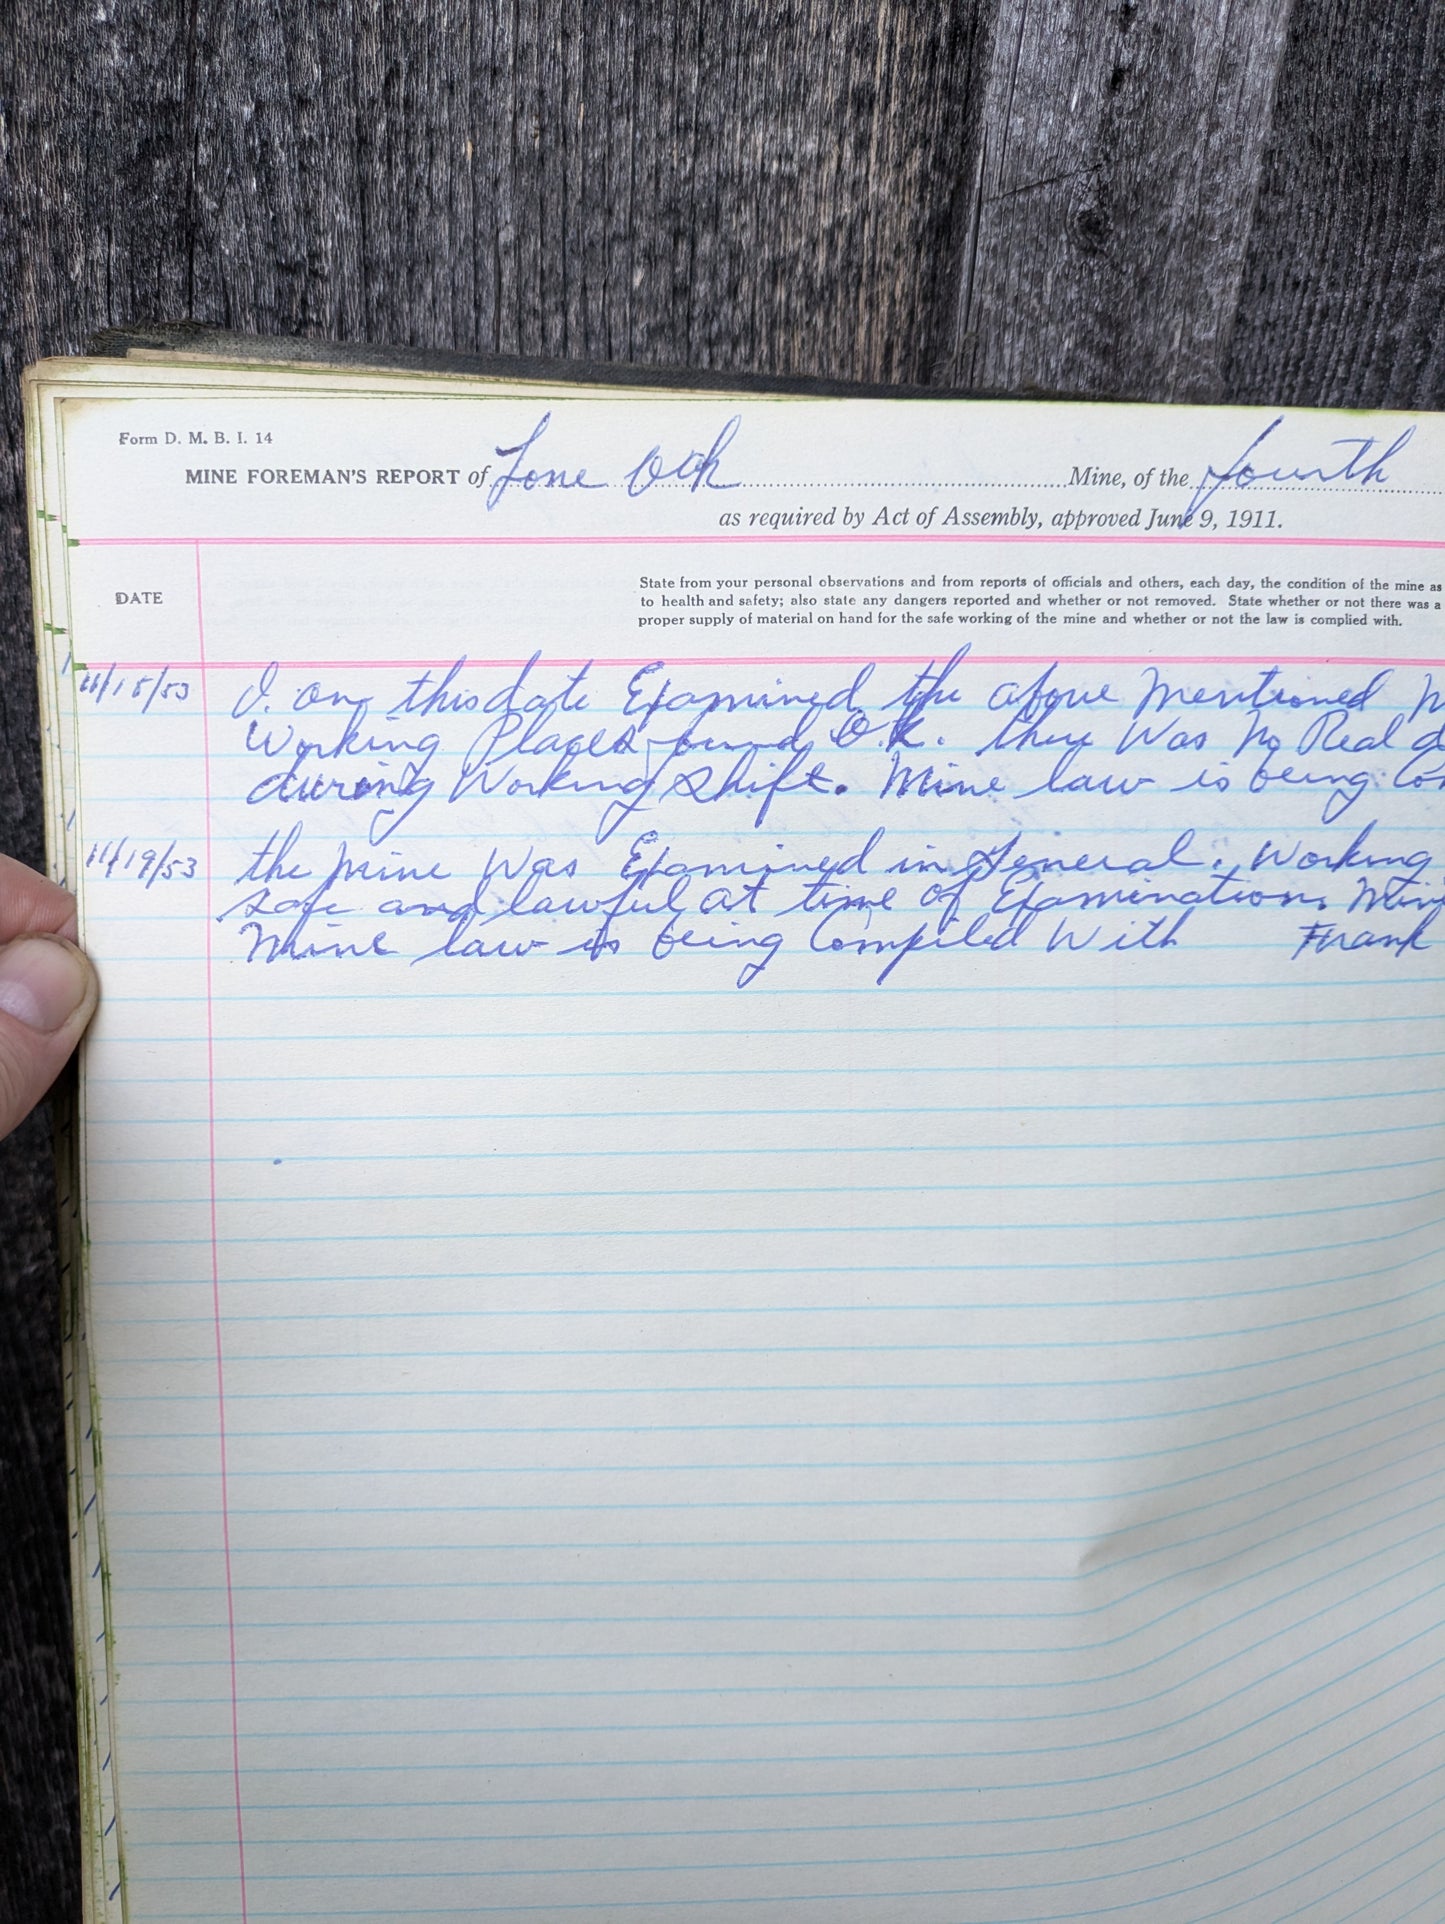 Form D. M. B. I. 14
MINE FOREMAN'S REPORT of Lone Oak Mine, of the fourth
as required by Act of Assembly, approved June 9, 1911.
DATE
State from your personal observations and from reports of officials and others, each day, the condition of the mine as
to health and safety; also state any dangers reported and whether or not removed. State whether or not there was a
proper supply of material on hand for the safe working of the mine and whether or not the law is complied with.
11/18/53 I. on this date Examined the above Mentioned
Working Places found O.K. there Was No Real
during Working Shift. Mine law is being
11/19/53 the Mine Was Examined in General. Working
safe and lawful at time of Examination.
Mine law is being Compiled With Frank